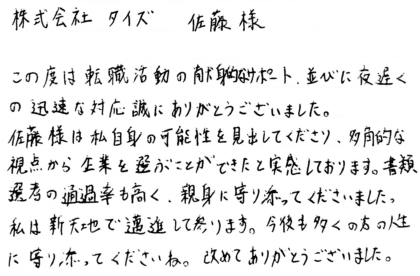 株式会社 タイズ 佐藤様
この度は転職活動の献身的なサポート、並びに夜遅く
の迅速な対応誠にありがとうございました。
佐藤様は私自身の可能性を見出してくださり、多角的な
視点から企業を選ぶことができたと実感しております。書類
選考の通過率も高く、親身に寄り添ってくださいました。
私は新天地で邁進して参ります。今後も多くの方の人生
に寄り添ってくださいね。改めてありがとうございました。